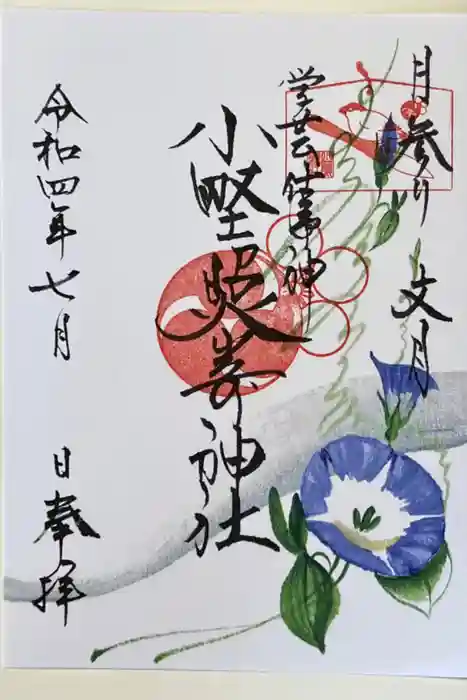 月参り 文月
学芸仕事神
小野照崎神社
令和四年七月 日奉拝